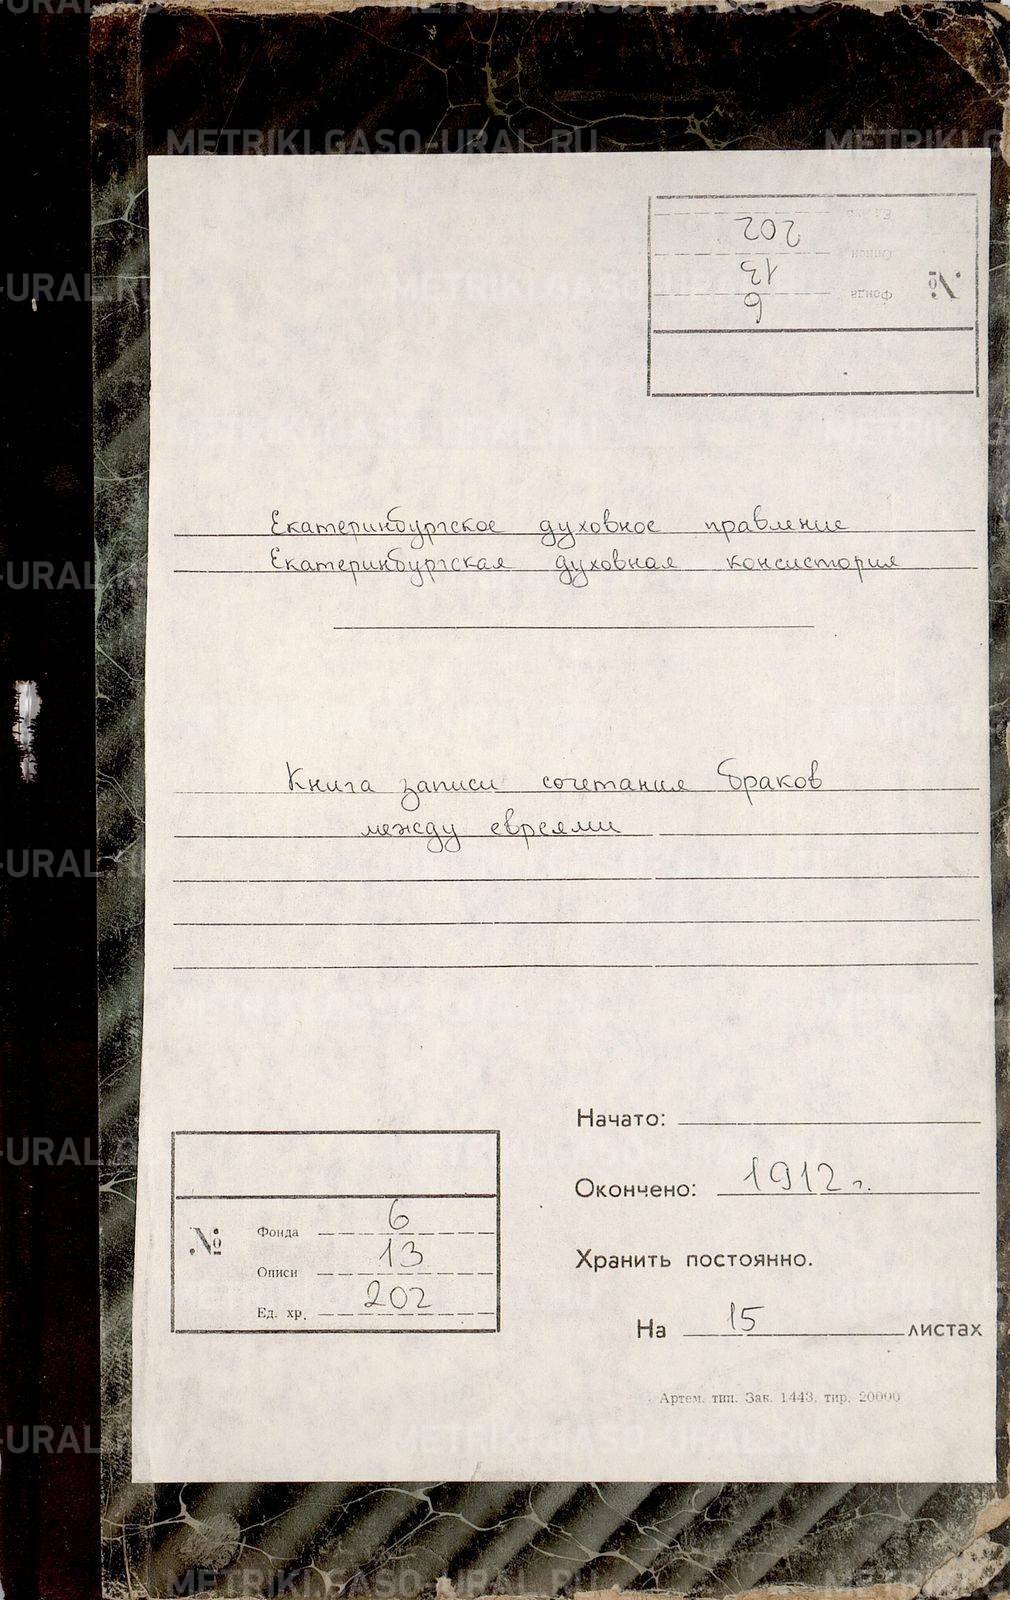 Ед. хр. 202
Описи 13
№ Фонда 6
Екатеринбургское духовное правление
Екатеринбургская духовная консистория
Книга записи сочетания браков
между евреями
Начато:
Окончено: 1912 г.
Хранить постоянно.
На 15 листах
№
Фонда 6
Описи 13
Ед. хр. 202
Артем. тип. Зак. 1443, тир. 20000
METRIKI.GASO-URAL.RU